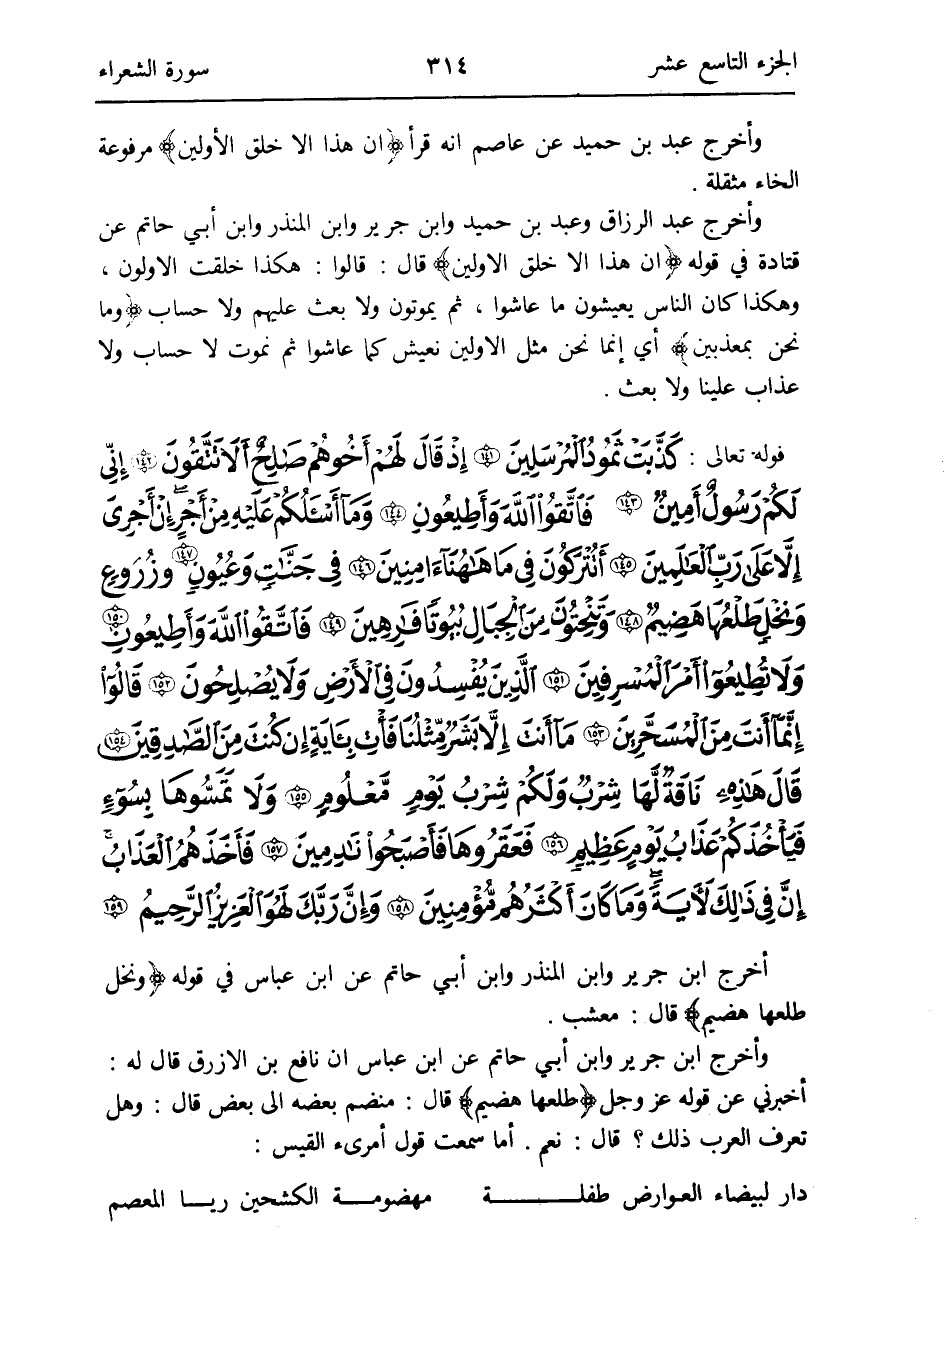 الجزء التاسع عشر ٣١٤ سورة الشعراء
وأخرج عبد بن حميد عن عاصم انه قرأ ﴿ان هذا الا خلق الأولين﴾ مرفوعة
الخاء مثقلة .
وأخرج عبد الرزاق وعبد بن حميد وابن جرير وابن المنذر وابن أبي حاتم عن
قتادة في قوله ﴿ان هذا الا خلق الاولين﴾ قال : قالوا : هكذا خلقت الاولون ،
وهكذا كان الناس يعيشون ما عاشوا ، ثم يموتون ولا بعث عليهم ولا حساب ﴿وما
نحن بمعذبين﴾ أي إنما نحن مثل الاولين نعيش كما عاشوا ثم نموت لا حساب ولا
عذاب علينا ولا بعث .
قوله تعالى : كَذَّبَتْ ثَمُودُ الْمُرْسَلِينَ ١٤١ إِذْ قَالَ لَهُمْ أَخُوهُمْ صَالِحٌ أَلَا تَتَّقُونَ ١٤٢ إِنِّي
لَكُمْ رَسُولٌ أَمِينٌ ١٤٣ فَاتَّقُوا اللَّهَ وَأَطِيعُونِ ١٤٤ وَمَا أَسْئَلُكُمْ عَلَيْهِ مِنْ أَجْرٍ إِنْ أَجْرِيَ
إِلَّا عَلَى رَبِّ الْعَالَمِينَ ١٤٥ أَتُتْرَكُونَ فِي مَا هَاهُنَا ءَامِنِينَ ١٤٦ فِي جَنَّاتٍ وَعُيُونٍ ١٤٧ وَزُرُوعٍ
وَنَخْلٍ طَلْعُهَا هَضِيمٌ ١٤٨ وَتَنْحِتُونَ مِنَ الْجِبَالِ بُيُوتًا فَارِهِينَ ١٤٩ فَاتَّقُوا اللَّهَ وَأَطِيعُونِ ١٥٠
وَلَا تُطِيعُوا أَمْرَ الْمُسْرِفِينَ ١٥١ الَّذِينَ يُفْسِدُونَ فِي الْأَرْضِ وَلَا يُصْلِحُونَ ١٥٢ قَالُوا
إِنَّمَا أَنتَ مِنَ الْمُسَحَّرِينَ ١٥٣ مَا أَنتَ إِلَّا بَشَرٌ مِّثْلُنَا فَأْتِ بِئَايَةٍ إِن كُنتَ مِنَ الصَّادِقِينَ ١٥٤
قَالَ هَاذِهِ نَاقَةٌ لَّهَا شِرْبٌ وَلَكُمْ شِرْبُ يَوْمٍ مَّعْلُومٍ ١٥٥ وَلَا تَمَسُّوهَا بِسُوءٍ
فَيَأْخُذَكُمْ عَذَابُ يَوْمٍ عَظِيمٍ ١٥٦ فَعَقَرُوهَا فَأَصْبَحُوا نَادِمِينَ ١٥٧ فَأَخَذَهُمُ الْعَذَابُ
إِنَّ فِي ذَالِكَ لَأَيَةً وَمَا كَانَ أَكْثَرُهُم مُّؤْمِنِينَ ١٥٨ وَإِنَّ رَبَّكَ لَهُوَ الْعَزِيزُ الرَّحِيمُ ١٥٩
أخرج ابن جرير وابن المنذر وابن أبي حاتم عن ابن عباس في قوله ﴿ونخل
طلعها هضيم﴾ قال : معشب .
وأخرج ابن جرير وابن أبي حاتم عن ابن عباس ان نافع بن الازرق قال له :
أخبرني عن قوله عز وجل ﴿طلعها هضيم﴾ قال : منضم بعضه الى بعض قال : وهل
تعرف العرب ذلك ؟ قال : نعم . أما سمعت قول أمرىء القيس :
دار لبيضاء العوارض طفلـــة مهضومـة الكشحين ريـا المعصم